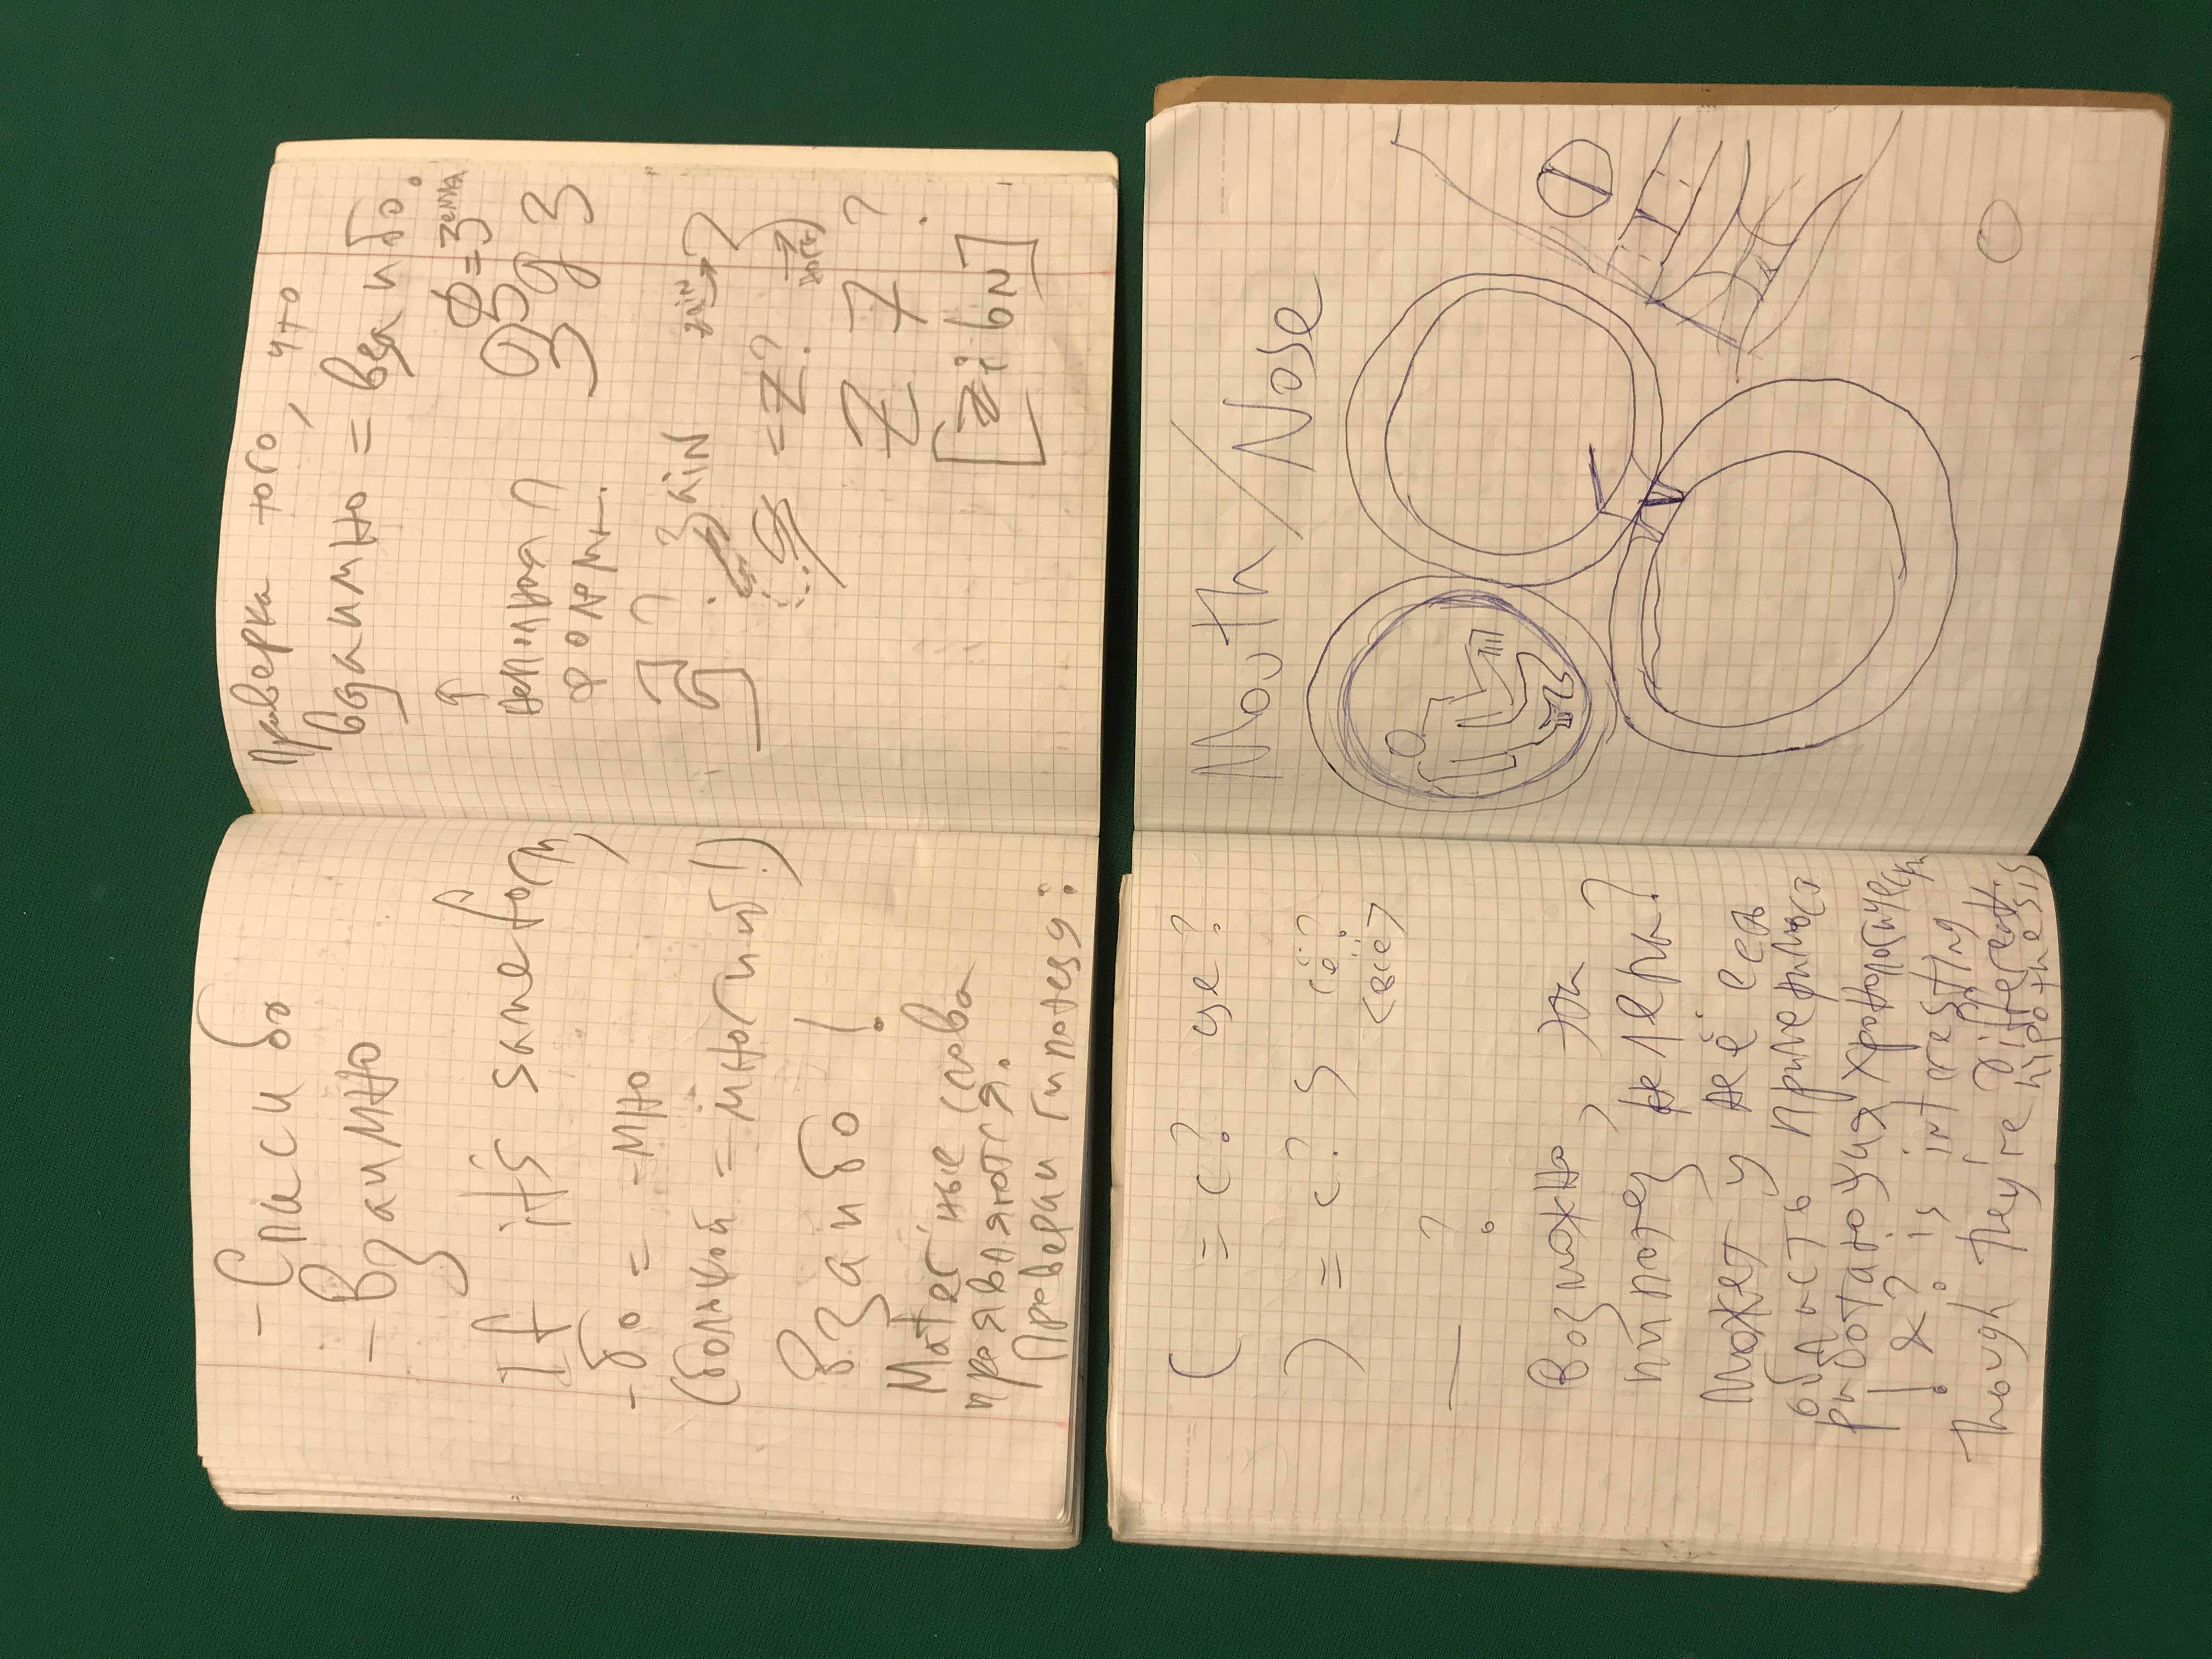 - Спасибо
- Взаимно
If it's same form,
-бо = -мно
(большой = многий!)
Взаибо!
Mater'ные слова
проявляются.
Проверяй гипотезу:
Проверка того, что
взаимно = взаибо.
↑
неполная
формы.
Ф = Земля
З g З
?
Зain
zain →
= Z?
→
нога
Z 7 ?
[zibn]
( = с? це?
) = с? S сё?
<всё>
— ?
Возможно, эта
гипотез неверна?
Может у неё есть
область применимос
работающая хронологически
! & ? is interesting
Though they're different
hypothesis
Mouth/Nose